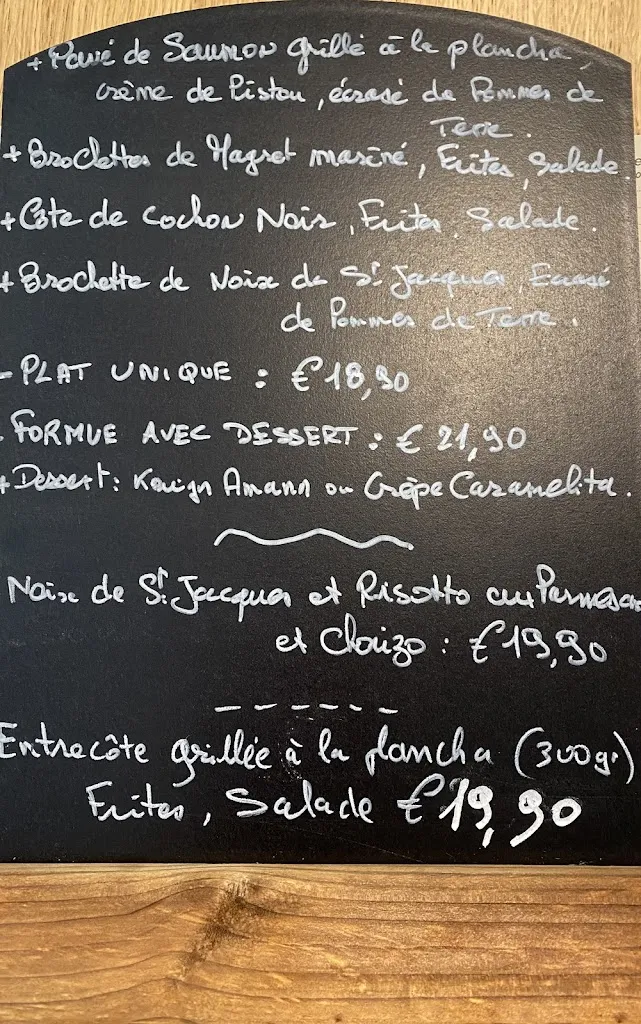 + Pavé de Saumon grillé à la plancha,
crème de Pistou, écrasé de Pommes de
Terre.
+ Brochettes de Magret mariné, Frites, Salade.
+ Côte de cochon Noir, Frites, Salade.
+ Brochette de Noix de St Jacques, Ecrasé
de Pommes de Terre.
- PLAT UNIQUE : € 18,90
- FORMULE AVEC DESSERT : € 21,90
+ Dessert : Kouign Amann ou Crêpe Caramelita.
Noix de St Jacques et Risotto au Parmesan
et Chorizo : € 19,90
Entrecôte grillée à la plancha (300gr)
Frites, Salade € 19,90